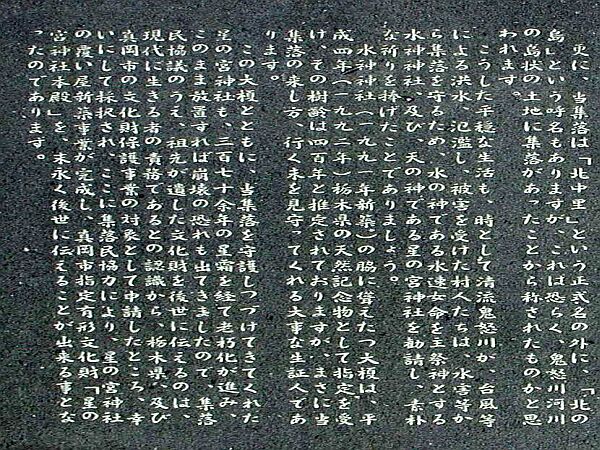 更に、当集落は「北中里」という正式名の外に、「北の
島」という呼名もありますが、これは恐らく、鬼怒川河川
の島状の土地に集落があったことから称されたものかと思
われます。
こうした平穏な生活も、時として清流鬼怒川が、台風等
による洪水、氾濫し、被害を受けた村人たちは、水害等か
ら集落を守るため、水の神である水速女命を主祭神とする
水神神社、及び、天の神である星の宮神社を勧請し、素朴
な祈りを捧げたことでありましょう。
水神神社(一九九一年新築)の脇に聳えたつ大榎は、平
成四年(一九九二年)栃木県の天然記念物として指定を受
け、その樹齢は四百年と推定されておりますが、まさに当
集落の来し方、行く末を見守ってくれる大事な生証人であ
ります。
この大榎とともに、当集落を守護しつづけてきてくれた
星の宮神社も、三百七十余年の星霜を経て老朽化が進み、
このまま放置すれば崩壊の恐れも出てきましたので、集落
民協議のうえ、祖先が遺した文化財を後世に伝えるのは、
現代に生きる者の責務であるとの認識から、栃木県、及び
真岡市の文化財保護事業の対象として申請したところ、幸
いにして採択され、ここに集落民協力により、星の宮神社
の覆い屋新築事業が完成し、真岡市指定有形文化財「星の
宮神社本殿」を、末永く後世に伝えることが出来る事とな
ったのであります。